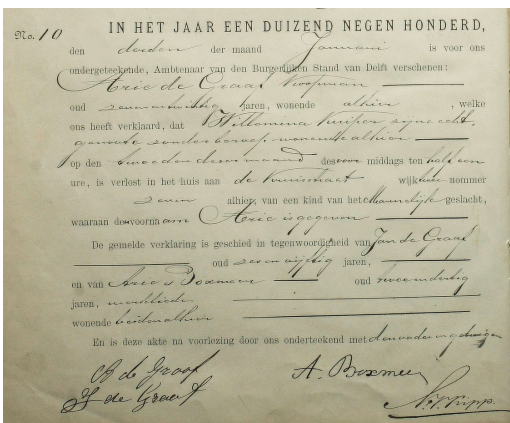 No. 10
IN HET JAAR EEN DUIZEND NEGEN HONDERD,
den derden der maand Januari is voor ons
ondergeteekende, Ambtenaar van den Burgerlijken Stand van Delft verschenen:
Arie de Graaf koopman
oud zevenentwintig jaren, wonende alhier, welke
ons heeft verklaard, dat Willemina Kuiper zijne echt-
genoote zonder beroep wonende alhier
op den tweeden dezer maand des voormiddags ten half een
ure, is verlost in het huis aan de Kruisstraat wijk nummer
zeven alhier, van een kind van het Mannelijk geslacht,
waaraan de voornaam Arie is gegeven
De gemelde verklaring is geschied in tegenwoordigheid van Jan de Graaf
oud zevenenvijftig jaren,
en van Arie Boxmeer oud tweeendertig
jaren, werklieden
wonende beiden alhier
En is deze akte na voorlezing door ons onderteekend met den vader en getuigen
A de Graaf
A. Boxmeer
J de Graaf